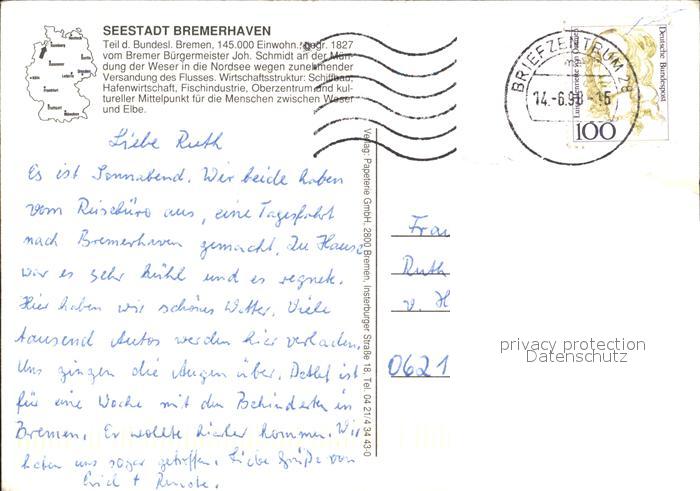 SEESTADT BREMERHAVEN
Teil d. Bundesl. Bremen, 145.000 Einwohn., gegr. 1827
vom Bremer Bürgermeister Joh. Schmidt an der Mün-
dung der Weser in die Nordsee wegen zunehmender
Versandung des Flusses. Wirtschaftsstruktur: Schiffbau,
Hafenwirtschaft, Fischindustrie, Oberzentrum und kul-
tureller Mittelpunkt für die Menschen zwischen Weser
und Elbe.
BRIEFZENTRUM 28
14.-6.98-15
Deutsche Bundespost
100
Liebe Ruth
Es ist Sonnabend. Wir beide haben
vom Reisebüro aus, eine Tagesfahrt
nach Bremerhaven gemacht. Zu Hause
war es sehr kühl und es regnete.
Hier haben wir schönes Wetter. Viele
tausend Autos werden hier verladen.
Uns gingen die Augen über. Detlef ist
für eine Woche mit den Behinderten in
Bremen. Er wollte hierher kommen. Wir
haben uns sogar getroffen. Liebe Grüße von
Erich + Renate.
Verlag: Papeterie GmbH, 2800 Bremen, Insterburger Straße 18, Tel. 04 21/4 34 43-0
Frau
Ruth
v. H
0621
privacy protection
Datenschutz